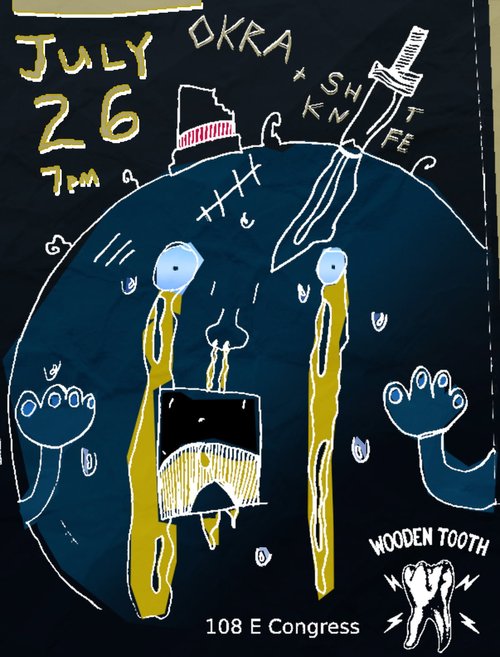 JULY
26
7PM
OKRA +
SH T
KN FE
WOODEN TOOTH
108 E Congress